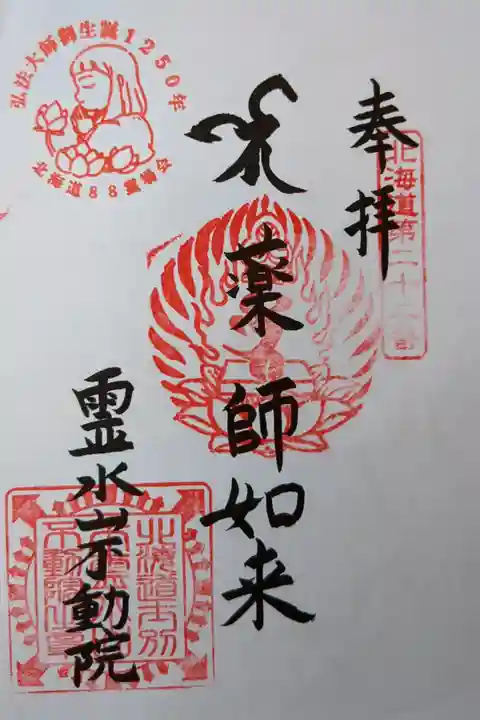 奉拝
北海道第二十二番
薬師如来
霊水山不動院
弘法大師御生誕1250年
北海道88霊場会